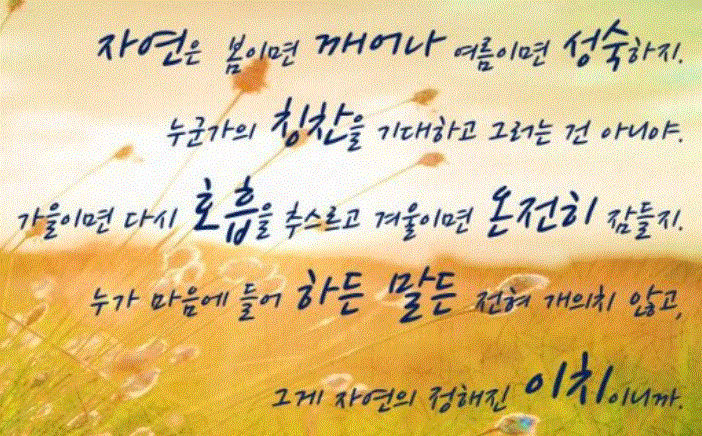 자연은 봄이면 깨어나 여름이면 성숙하지.
누군가의 칭찬을 기대하고 그러는 건 아니야.
가을이면 다시 호흡을 추스르고 겨울이면 온전히 잠들지.
누가 마음에 들어 하든 말든 전혀 개의치 않고,
그게 자연의 정해진 이치이니까.